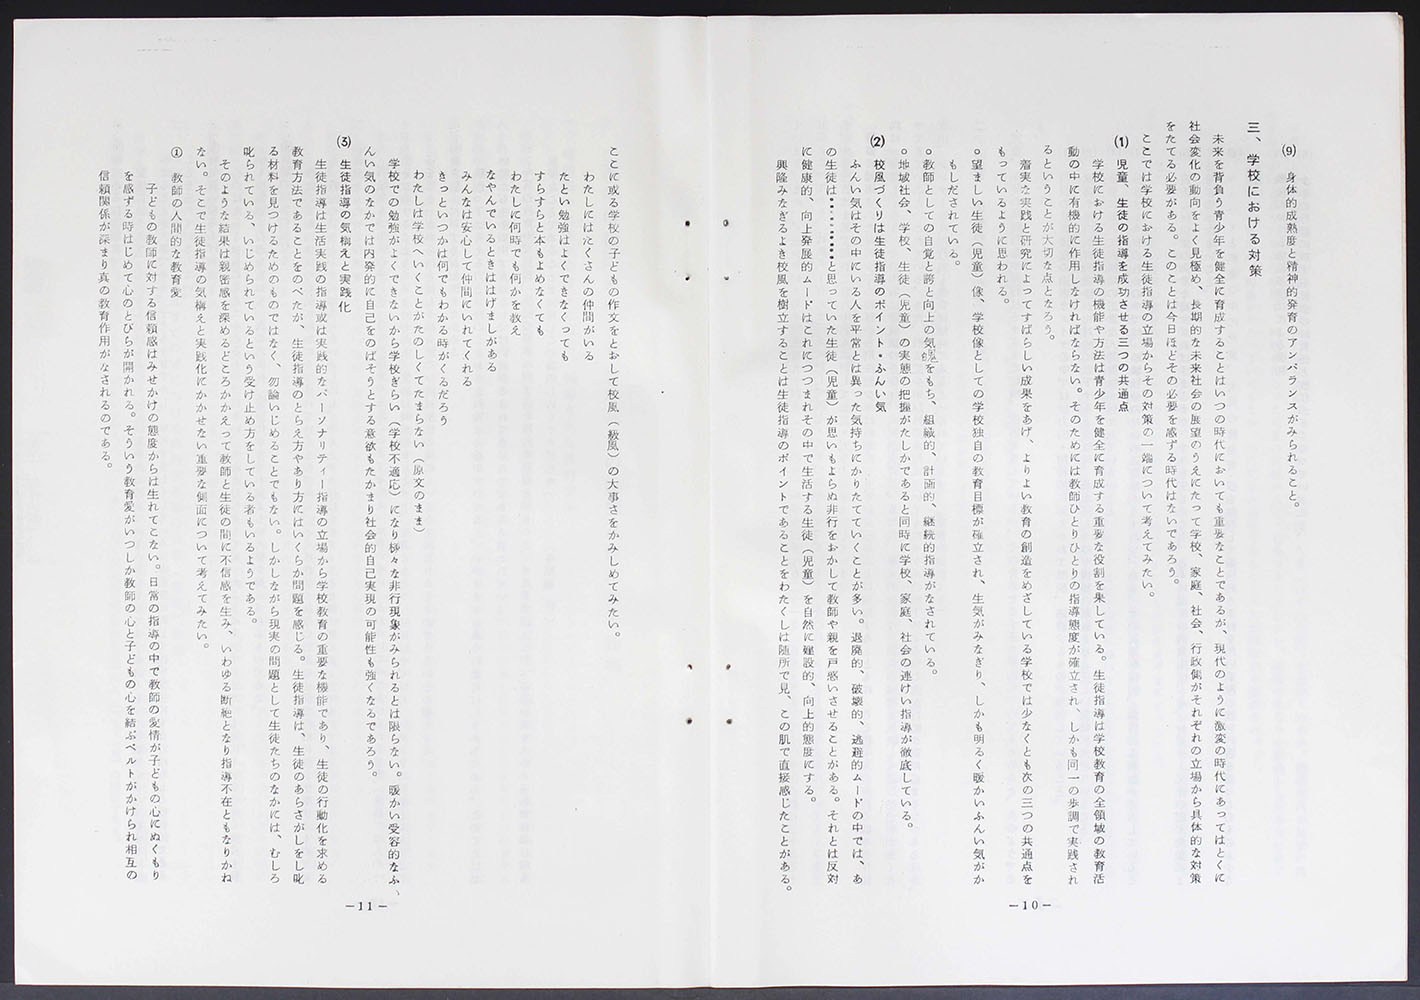 ⑼　身体的成熟度と精神的発育のアンバランスがみられること。
三、学校における対策
未来を背負う青少年を健全に育成することはいつの時代においても重要なことであるが、現代のように激変の時代にあってはとくに
社会変化の動向をよく見極め、長期的な未来社会の展望のうえにたって学校、家庭、社会、行政側がそれぞれの立場から具体的な対策
をたてる必要がある。このことは今日ほどその必要を感ずる時代はないであろう。
ここでは学校における生徒指導の立場からその対策の一端について考えてみたい。
⑴　児童、生徒の指導を成功させる三つの共通点
学校における生徒指導の機能や方法は青少年を健全に育成する重要な役割を果している。生徒指導は学校教育の全領域の教育活
動の中に有機的に作用しなければならない。そのためには教師ひとりひとりの指導態度が確立され、しかも同一の歩調で実践され
るということが大切な点となろう。
着実な実践と研究によってすばらしい成果をあげ、よりよい教育の創造をめざしている学校では少なくとも次の三つの共通点を
もっているように思われる。
○望ましい生徒（児童）像、学校像としての学校独自の教育目標が確立され、生気がみなぎり、しかも明るく暖かいふんい気がか
もしだされている。
○教師としての自覚と誇と向上の気魄をもち、組織的、計画的、継続的指導がなされている。
○地域社会、学校、生徒（児童）の実態の把握がたしかであると同時に学校、家庭、社会の連けい指導が徹底している。
⑵　校風づくりは生徒指導のポイント・ふんい気
ふんい気はその中にいる人を平常とは異った気持ちにかりたてていくことが多い。退廃的、破壊的、逃避的ムードの中では、あ
の生徒は・・・・・・・・・と思っていた生徒（児童）が思いもよらぬ非行をおかして教師や親を戸惑いさせることがある。それとは反対
に健康的、向上発展的ムードはこれにつつまれその中で生活する生徒（児童）を自然に建設的、向上的態度にする。
興隆みなぎるよき校風を樹立することは生徒指導のポイントであることをわたくしは随所で見、この肌で直接感じたことがある。
—10—
ここに或る学校の子どもの作文をとおして校風（級風）の大事さをかみしめてみたい。
わたしにはたくさんの仲間がいる
たとい勉強はよくできなくっても
すらすらと本もよめなくても
わたしに何時でも何かを教え
なやんでいるときははげましがある
みんなは安心して仲間にいれてくれる
きっといつかは何でもわかる時がくるだろう
わたしは学校へいくことがたのしくてたまらない（原文のまま）
学校での勉強がよくできないから学校ぎらい（学校不適応）になり様々な非行現象がみられるとは限らない。暖かい受容的なふ
んい気のなかでは内発的に自己をのばそうとする意欲もたかまり社会的自己実現の可能性も強くなるであろう。
⑶　生徒指導の気構えと実践化
生徒指導は生活実践の指導或は実践的なパーソナリティー指導の立場から学校教育の重要な機能であり、生徒の行動化を求める
教育方法であることをのべたが、生徒指導のとらえ方やあり方にはいくらか問題を感じる。生徒指導は、生徒のあらさがしをし叱
る材料を見つけるためのものではなく、勿論いじめることでもない。しかしながら現実の問題として生徒たちのなかには、むしろ
叱られている、いじめられているという受け止め方をしている者もいるようである。
そのような結果は親密感を深めるどころかかえって教師と生徒の間に不信感を生み、いわゆる断絶となり指導不在ともなりかね
ない。そこで生徒指導の気構えと実践化にかかせない重要な側面について考えてみたい。
①　教師の人間的な教育愛
子どもの教師に対する信頼感はみせかけの態度からは生れてこない。日常の指導の中で教師の愛情が子どもの心にぬくもり
を感ずる時はじめて心のとびらが開かれる。そういう教育愛がいつしか教師の心と子どもの心を結ぶベルトがかけられ相互の
信頼関係が深まり真の教育作用がなされるのである。
—11—